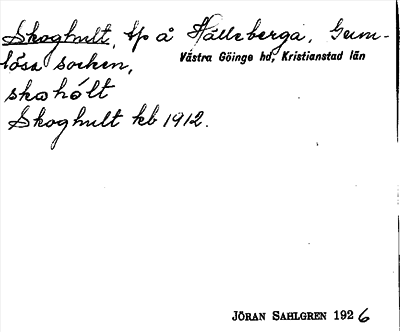 Skoghult, tp å Hälleberga, Gum-
lösa socken, Västra Göinge hd, Kristianstad län
skɷhólt
Skoghult kb 1912.
JÖRAN SAHLGREN 1926